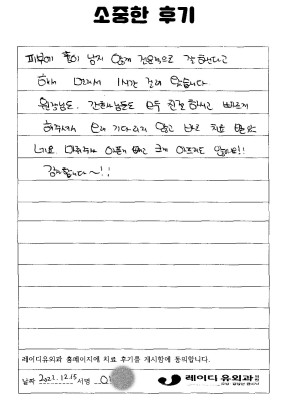 소중한 후기
피부에 흉이 남지 않게 전문적으로 잘 하신다고
해서 멀리서 1시간 걸려 왔습니다
원장님도, 간호사님들도 모두 친절하시고 빠르게
해주셔서 오래 기다리지 않고 바로 치료 받았
네요 마취주사 아픈거 빼고 크게 아프지도 않네요!!
감사합니다~!!
레이디유외과 홈페이지에 치료 후기를 게시함에 동의합니다.
날짜 2023.12.15 서명
레이디유외과